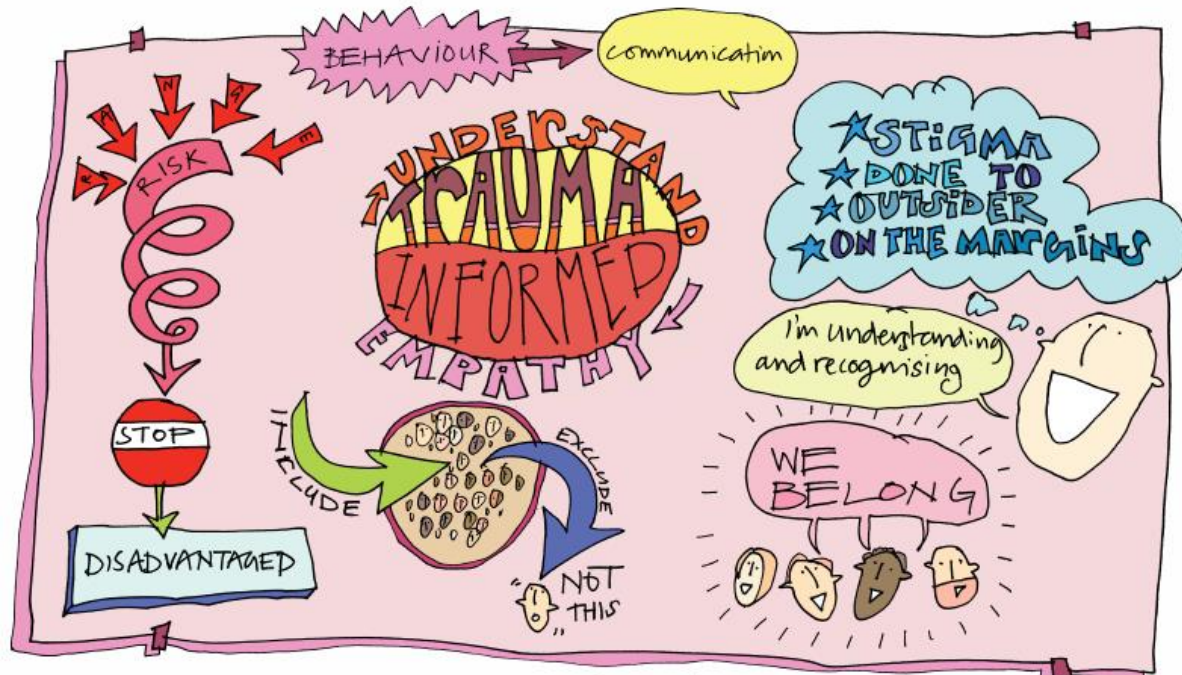 BEHAVIOUR
communication
R A N S E
RISK
STOP
DISADVANTAGED
UNDERSTAND
TRAUMA
INFORMED
EMPATHY
INCLUDE
EXCLUDE
"
"
NOT
THIS
STIGMA
DONE TO
OUTSIDER
ON THE MARGINS
I'm understanding
and recognising
WE
BELONG